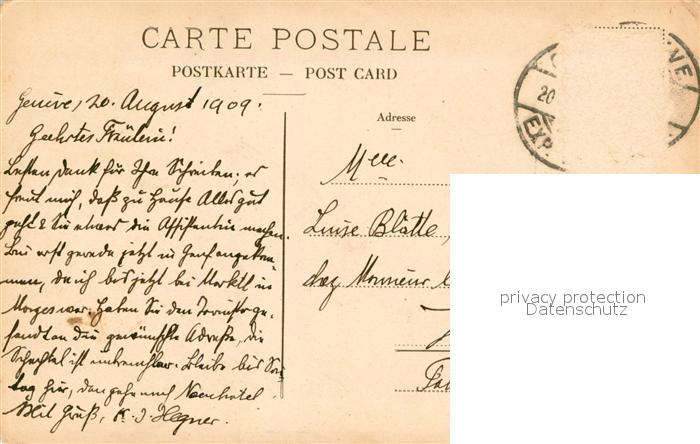 CARTE POSTALE
POSTKARTE — POST CARD
Genève, 20. August 1909.
Geehrtes Fräulein!
Besten Dank für Ihr Schreiben; es
freut mich, daß zu Hause Alles gut
geht & Sie etwas die Assistentin machen.
Bin erst gerade jetzt in Genf angekom-
men, da ich bis jetzt bei in
Morges war. Haben Sie den
sandt an die gewünschte Adresse, die
Schachtel ist unbrauchbar. Bleibe bis
tag hier, dann gehe nach
Mit Gruß, K. J. Hegner.
Adresse
Mlle.
Luise Blättle,
chez Monsieur
GENÈVE
20
EXP.
privacy protection
Datenschutz